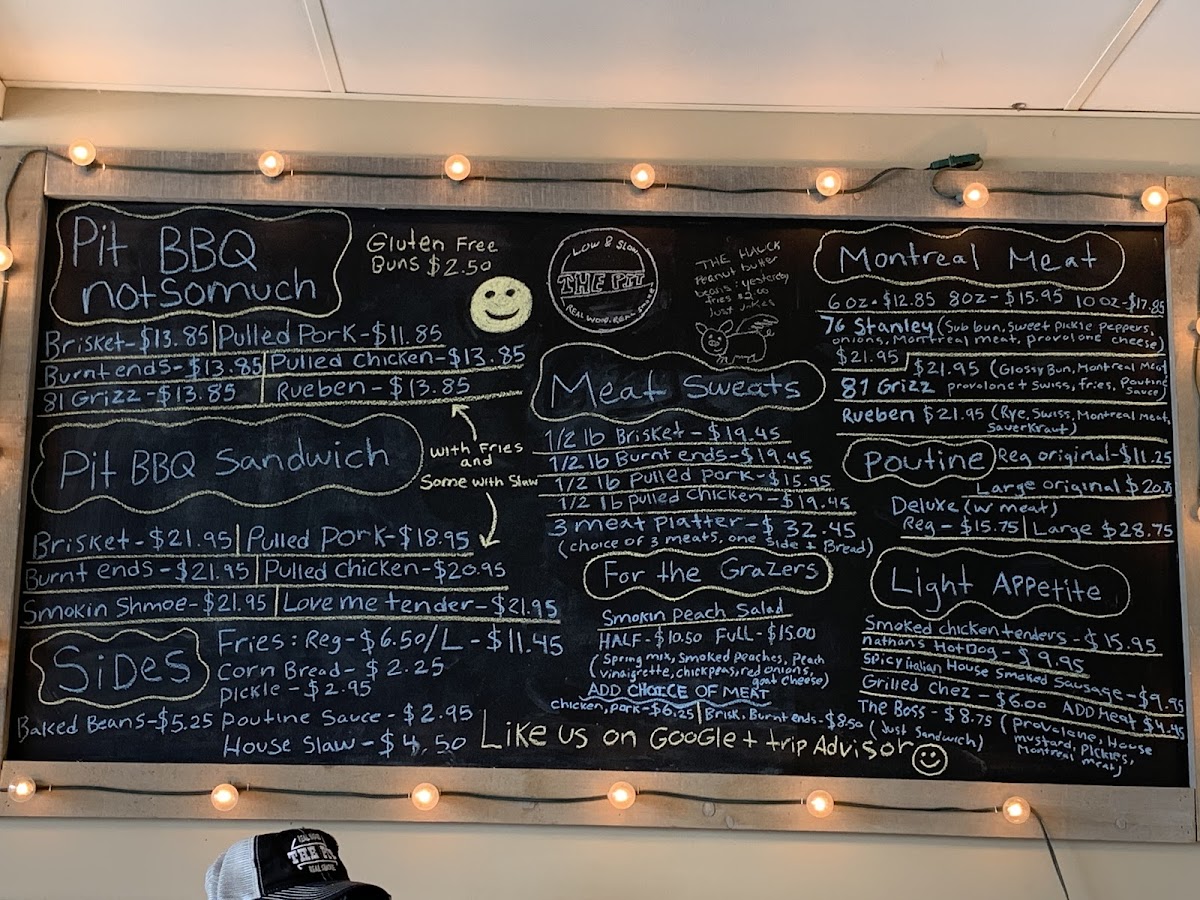 Pit BBQ
notsomuch
Gluten Free
Buns $2.50
Brisket-$13.85 | Pulled Pork-$11.85
Burnt ends-$13.85 | Pulled Chicken-$13.85
81 Grizz-$13.85 Rueben-$13.85
with Fries
and
Some with Slaw
Pit BBQ Sandwich
Brisket-$21.95 | Pulled Pork-$18.95
Burnt ends-$21.95 | Pulled Chicken-$20.95
Smokin Shmoe-$21.95 | Love me tender-$21.95
Sides
Fries: Reg-$6.50/L-$11.45
Corn Bread-$2.25
Pickle-$2.95
Baked Beans-$5.25 Poutine Sauce-$2.95
House Slaw-$4.50
LOW & SLOW
THE PIT
REAL WOOD, REAL SMOKE
THE HAWCK
Peanut butter
beans: yesterday
fries $2.00
Just Jokes
Meat Sweats
1/2 lb Brisket-$19.45
1/2 lb Burnt ends-$19.45
1/2 lb pulled pork-$15.95
1/2 lb pulled chicken-$19.45
3 meat platter-$32.45
(choice of 3 meats, one side + Bread)
For the Grazers
Smokin Peach Salad
HALF-$10.50 FULL-$15.00
(Spring mix, smoked peaches, peach
vinaigrette, chickpeas, red onions
goat cheese)
ADD CHOICE OF MEAT
chicken, pork-$6.25 | Brisk, Burnt ends-$8.50
Like us on Google + trip Advisor
Montreal Meat
6 oz-$12.85 8oz-$15.95 10 oz-$17.85
76 Stanley (Sub bun, sweet pickle peppers,
onions, Montreal meat, provolone cheese)
$21.95
$21.95 (Glossy Bun, Montreal Meat
81 Grizz provolone + swiss, fries, Poutine
Sauce)
Rueben $21.95 (Rye, Swiss, Montreal meat,
Sauerkraut)
Poutine Reg original-$11.25
Large original $20.
Deluxe (w meat)
Reg-$15.75 | Large $28.75
Light Appetite
Smoked chicken tenders-$15.95
Nathan's HotDog-$9.95
Spicy italian House smoked Sausage-$9.95
Grilled Chez-$6.00 ADD Meat $4.45
The Boss-$8.75 (Provolone, House
(Just Sandwich) mustard, Pickles,
Montreal meat)
THE PIT